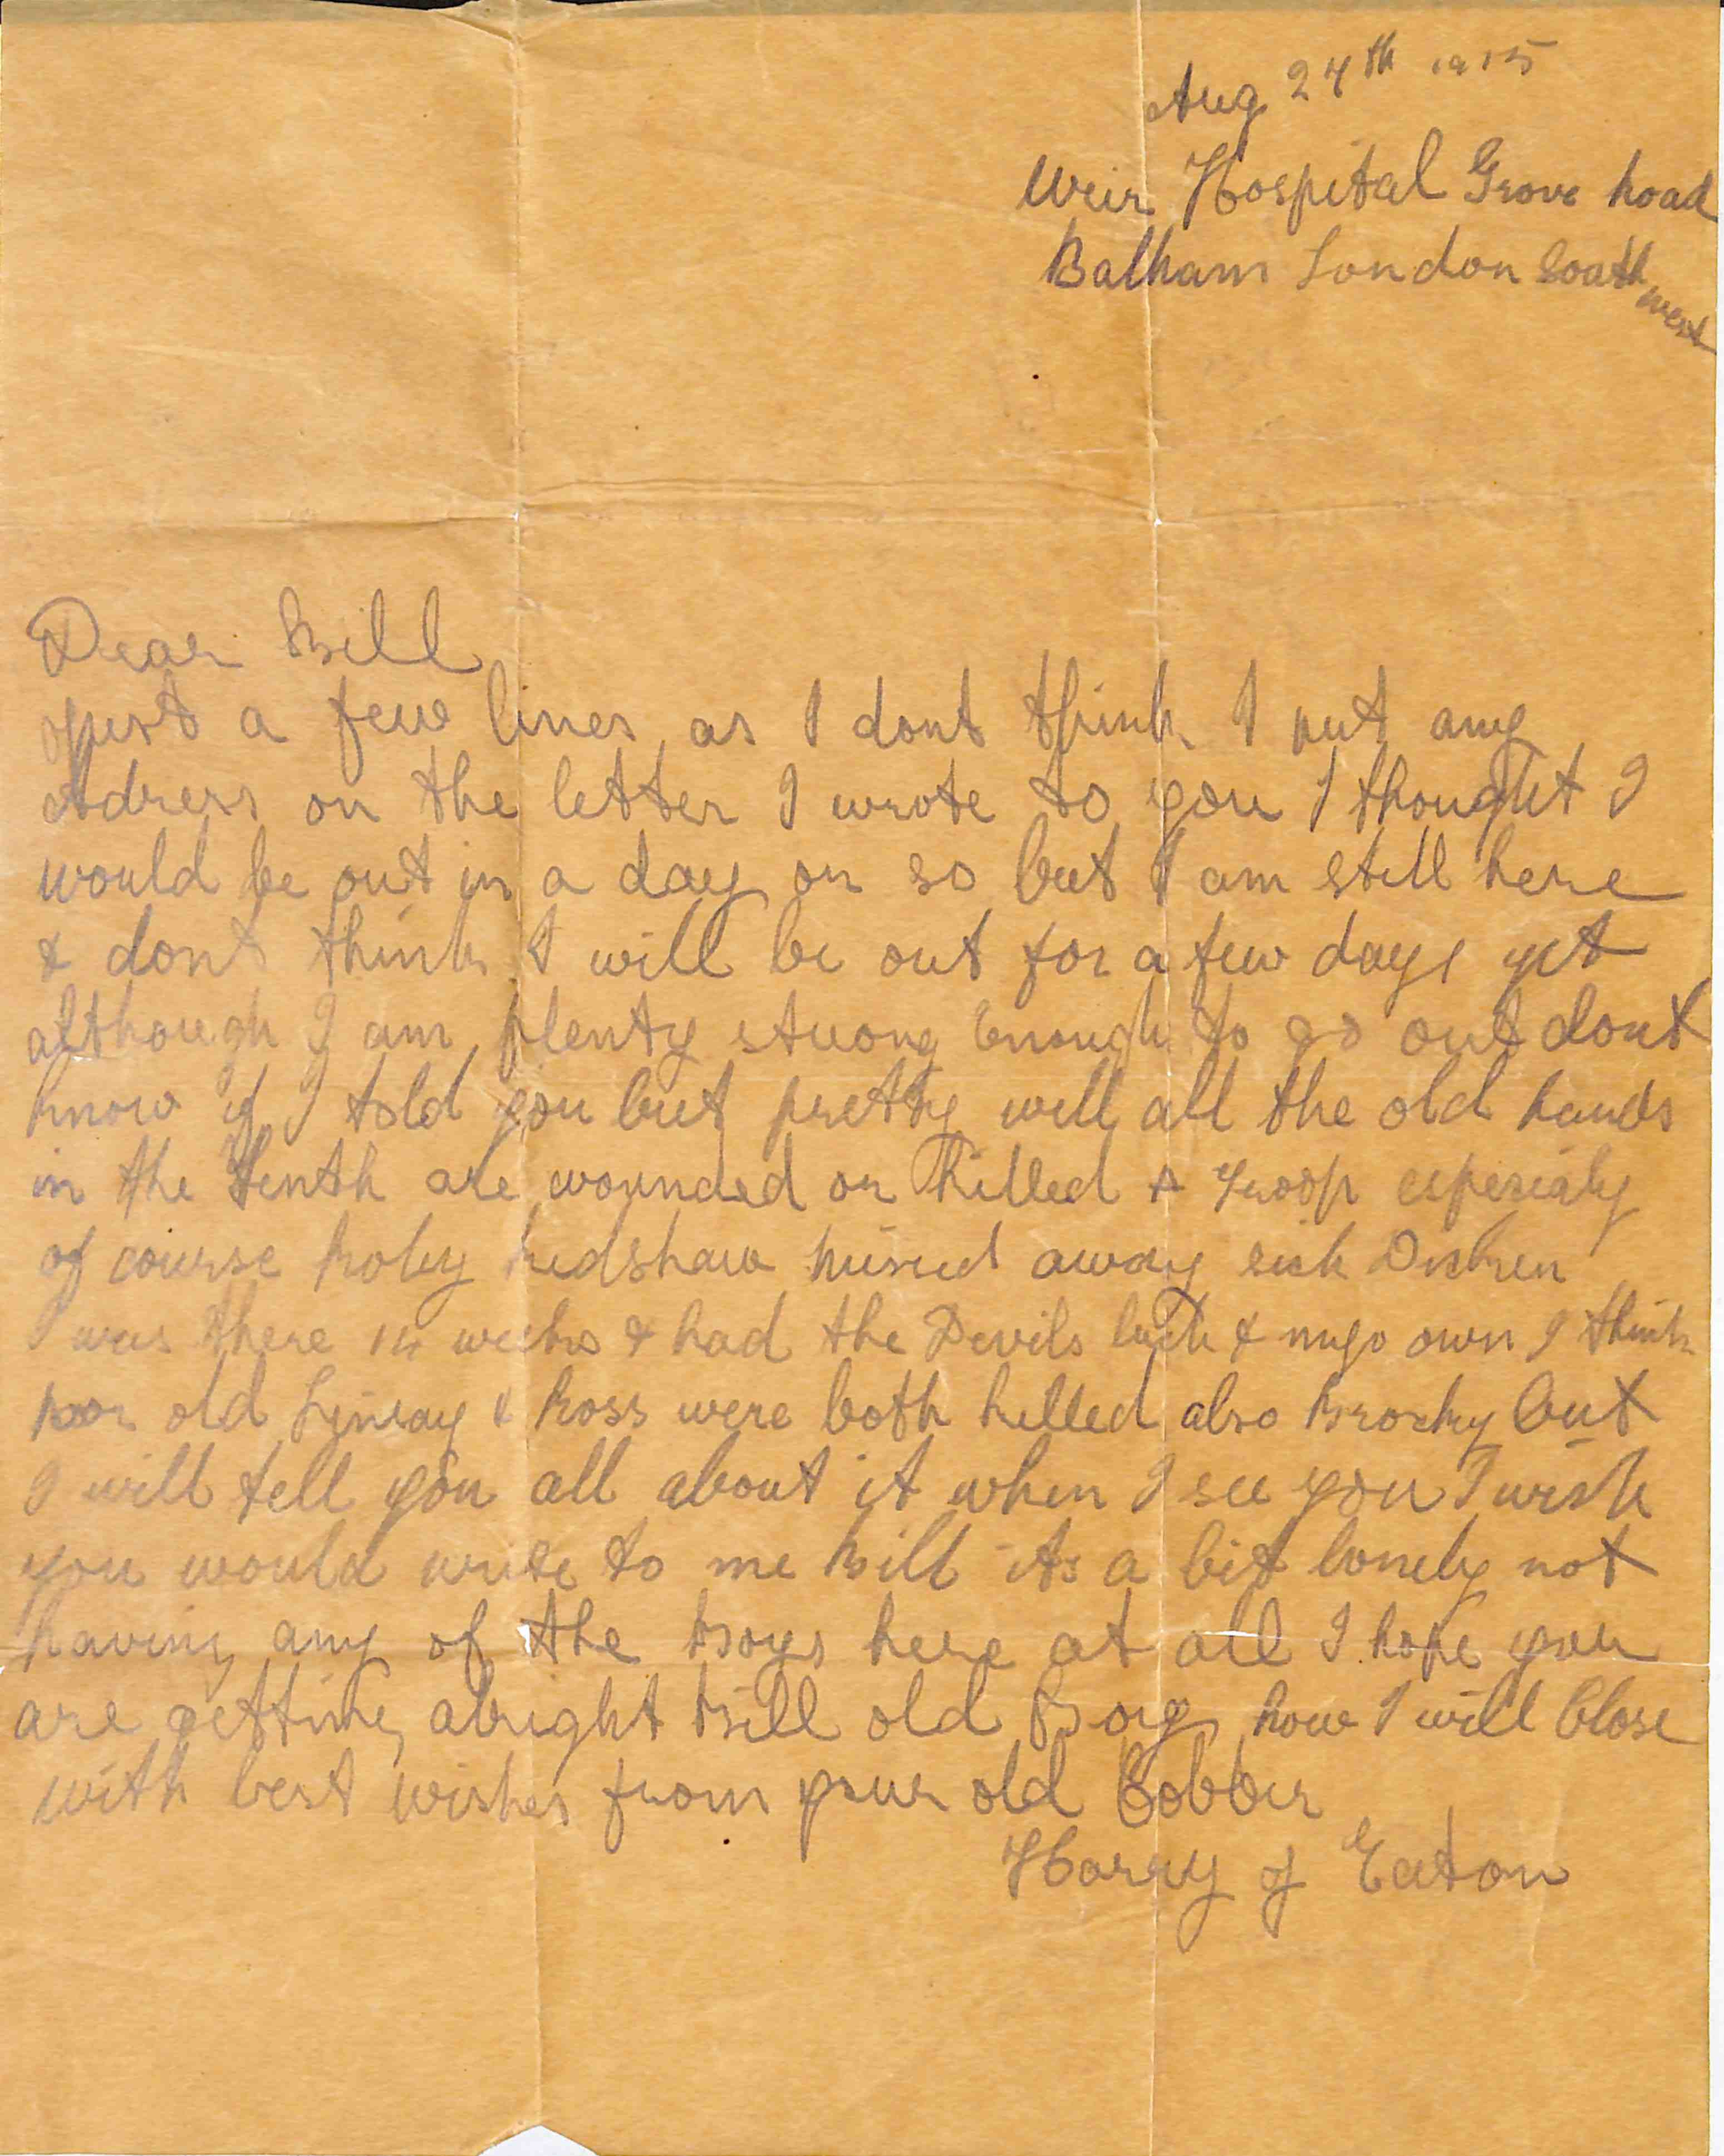 Aug 24th 1915
Weir Hospital Grove Road
Balham London South
west
Dear Bill
Just a few lines as I dont think I put any
Adress on the letter I wrote to you I thought I
would be out in a day or so but I am still here
& dont think I will be out for a few days yet
although I am plenty strong Enough to go out dont
know if I told you but pretty well all the old hands
in the Tenth are wounded or Killed A Troop especialy
of course Roby Redshaw away sick
I was there 14 weeks & had the Devils luck & my own I think
poor old & Ross were both killed also but
I will tell you all about it when I see you I wish
you would write to me Bill its a bit lonely not
having any of the Boys here at all I hope you
are getting alright Bill old Boy now I will Close
with best wishes from your old Cobber
Harry J Eaton